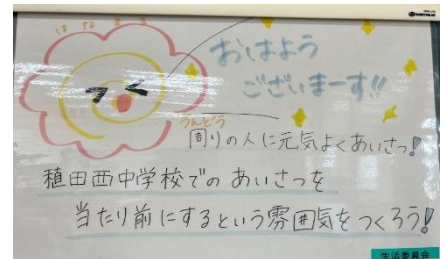 はなまる
おはよう
ございまーす!!
周りの人に元気よくあいさつ!
種田西中学校でのあいさつを
当たり前にするという雰囲気をつくろう!
生活委員会